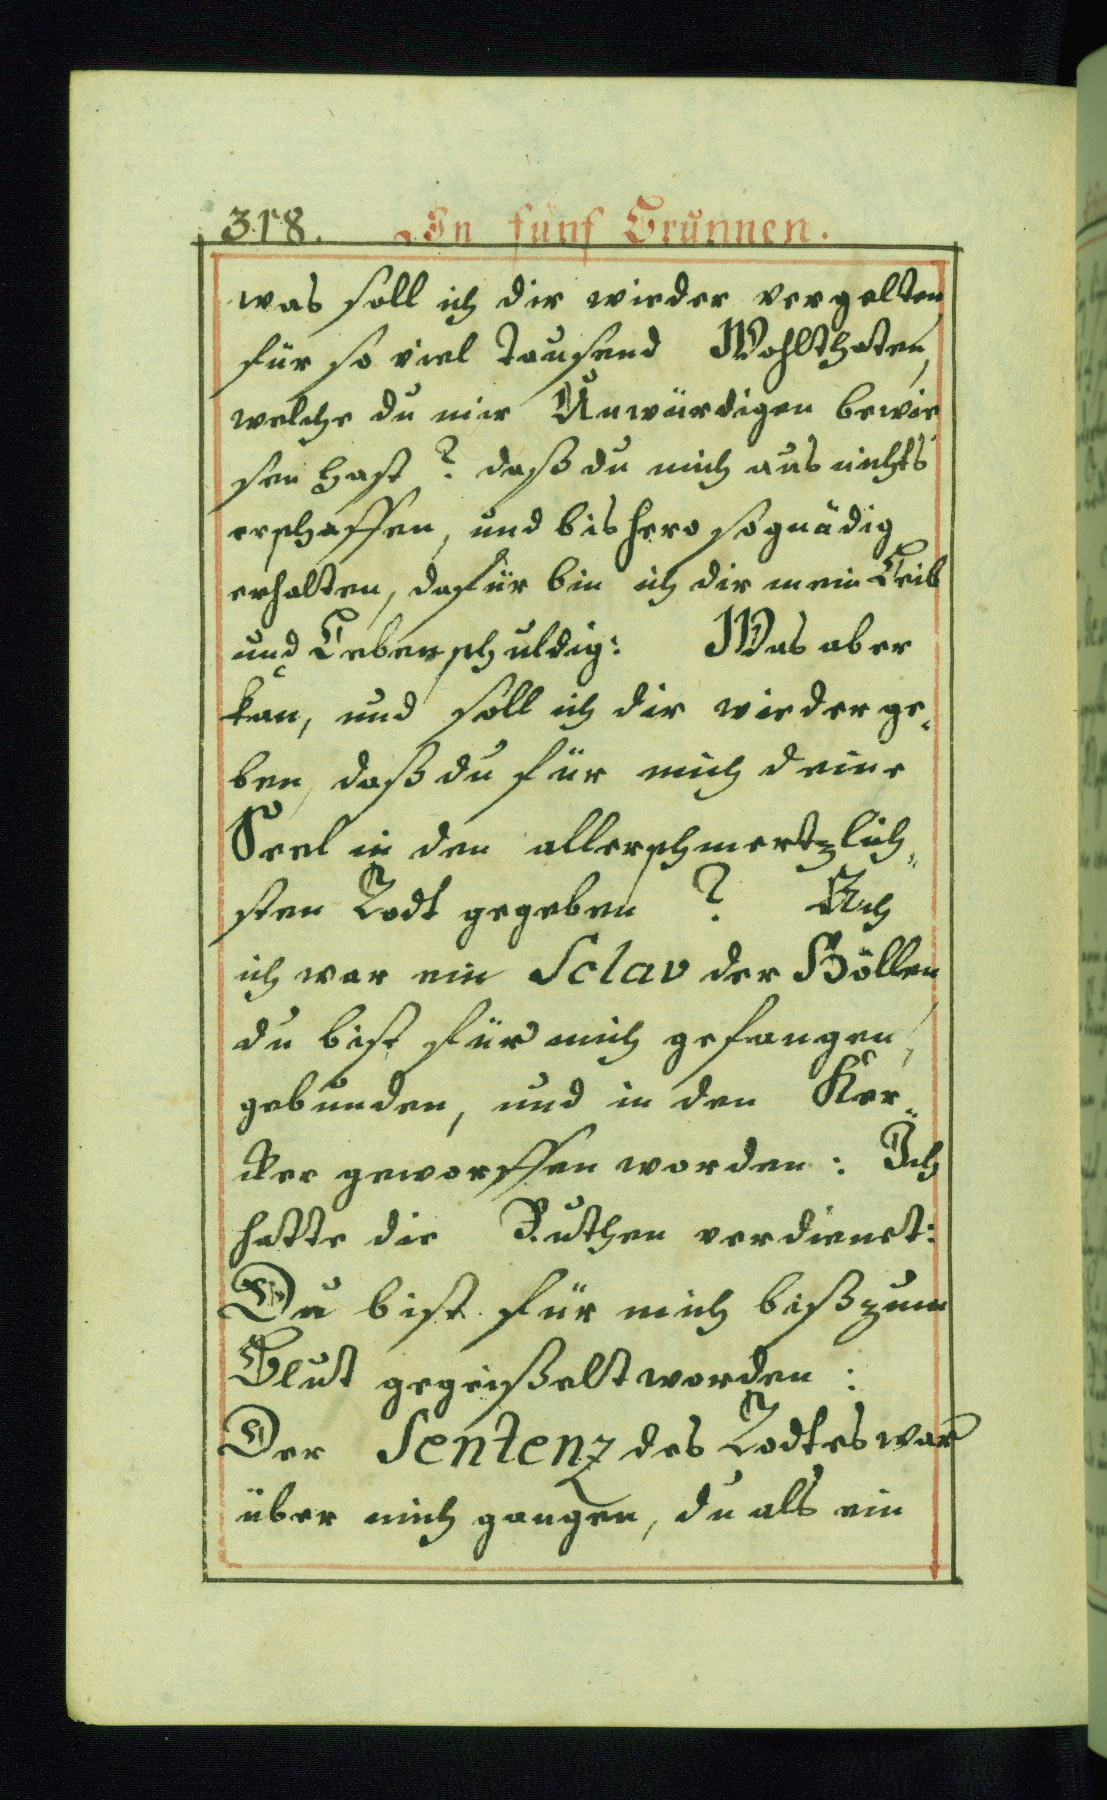 318. In fünf Brunnen.
was soll ich dir wieder vergelten
für so viel tausend Wohlthaten,
welche du mir Unwürdigen bewie
sen hast? daß du mich aus nichts
erschaffen, und bishero so gnädig
erhalten, dafür bin ich dir mein Leib
und Leben schuldig: Was aber
kan, und soll ich dir wieder ge„
ben, daß du für mich deine
Seel in den allerschmertzlich„
sten Todt gegeben? Ach
ich war ein Sclav der Höllen,
du bist für mich gefangen,
gebunden, und in den Ker„
cker geworffen worden: Ich
hatte die Ruthen verdienet:
Du bist für mich biß zum
Blut gegeißelt worden:
Der Sentenz des Todtes war
über mich gangen, du als ein